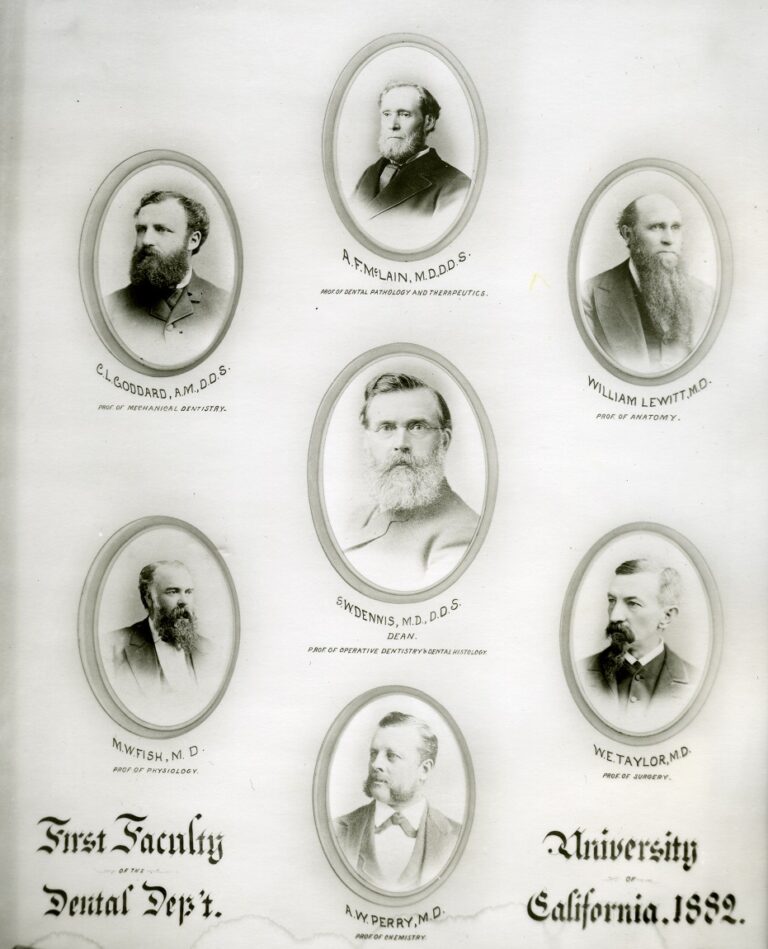 A.F.McLAIN, M.D.D.D.S.
PROF. OF DENTAL PATHOLOGY AND THERAPEUTICS.
C.L.GODDARD, A.M., D.D.S.
PROF. OF MECHANICAL DENTISTRY.
WILLIAM LEWITT, M.D.
PROF. OF ANATOMY.
S.W.DENNIS, M.D., D.D.S.
DEAN.
PROF. OF OPERATIVE DENTISTRY & DENTAL HISTOLOGY
M.W.FISH, M.D.
PROF. OF PHYSIOLOGY.
W.E.TAYLOR, M.D.
PROF. OF SURGERY.
A.W.PERRY, M.D.
PROF. OF CHEMISTRY.
First Faculty
OF THE
Dental Dep't.
University
OF
California. 1882.